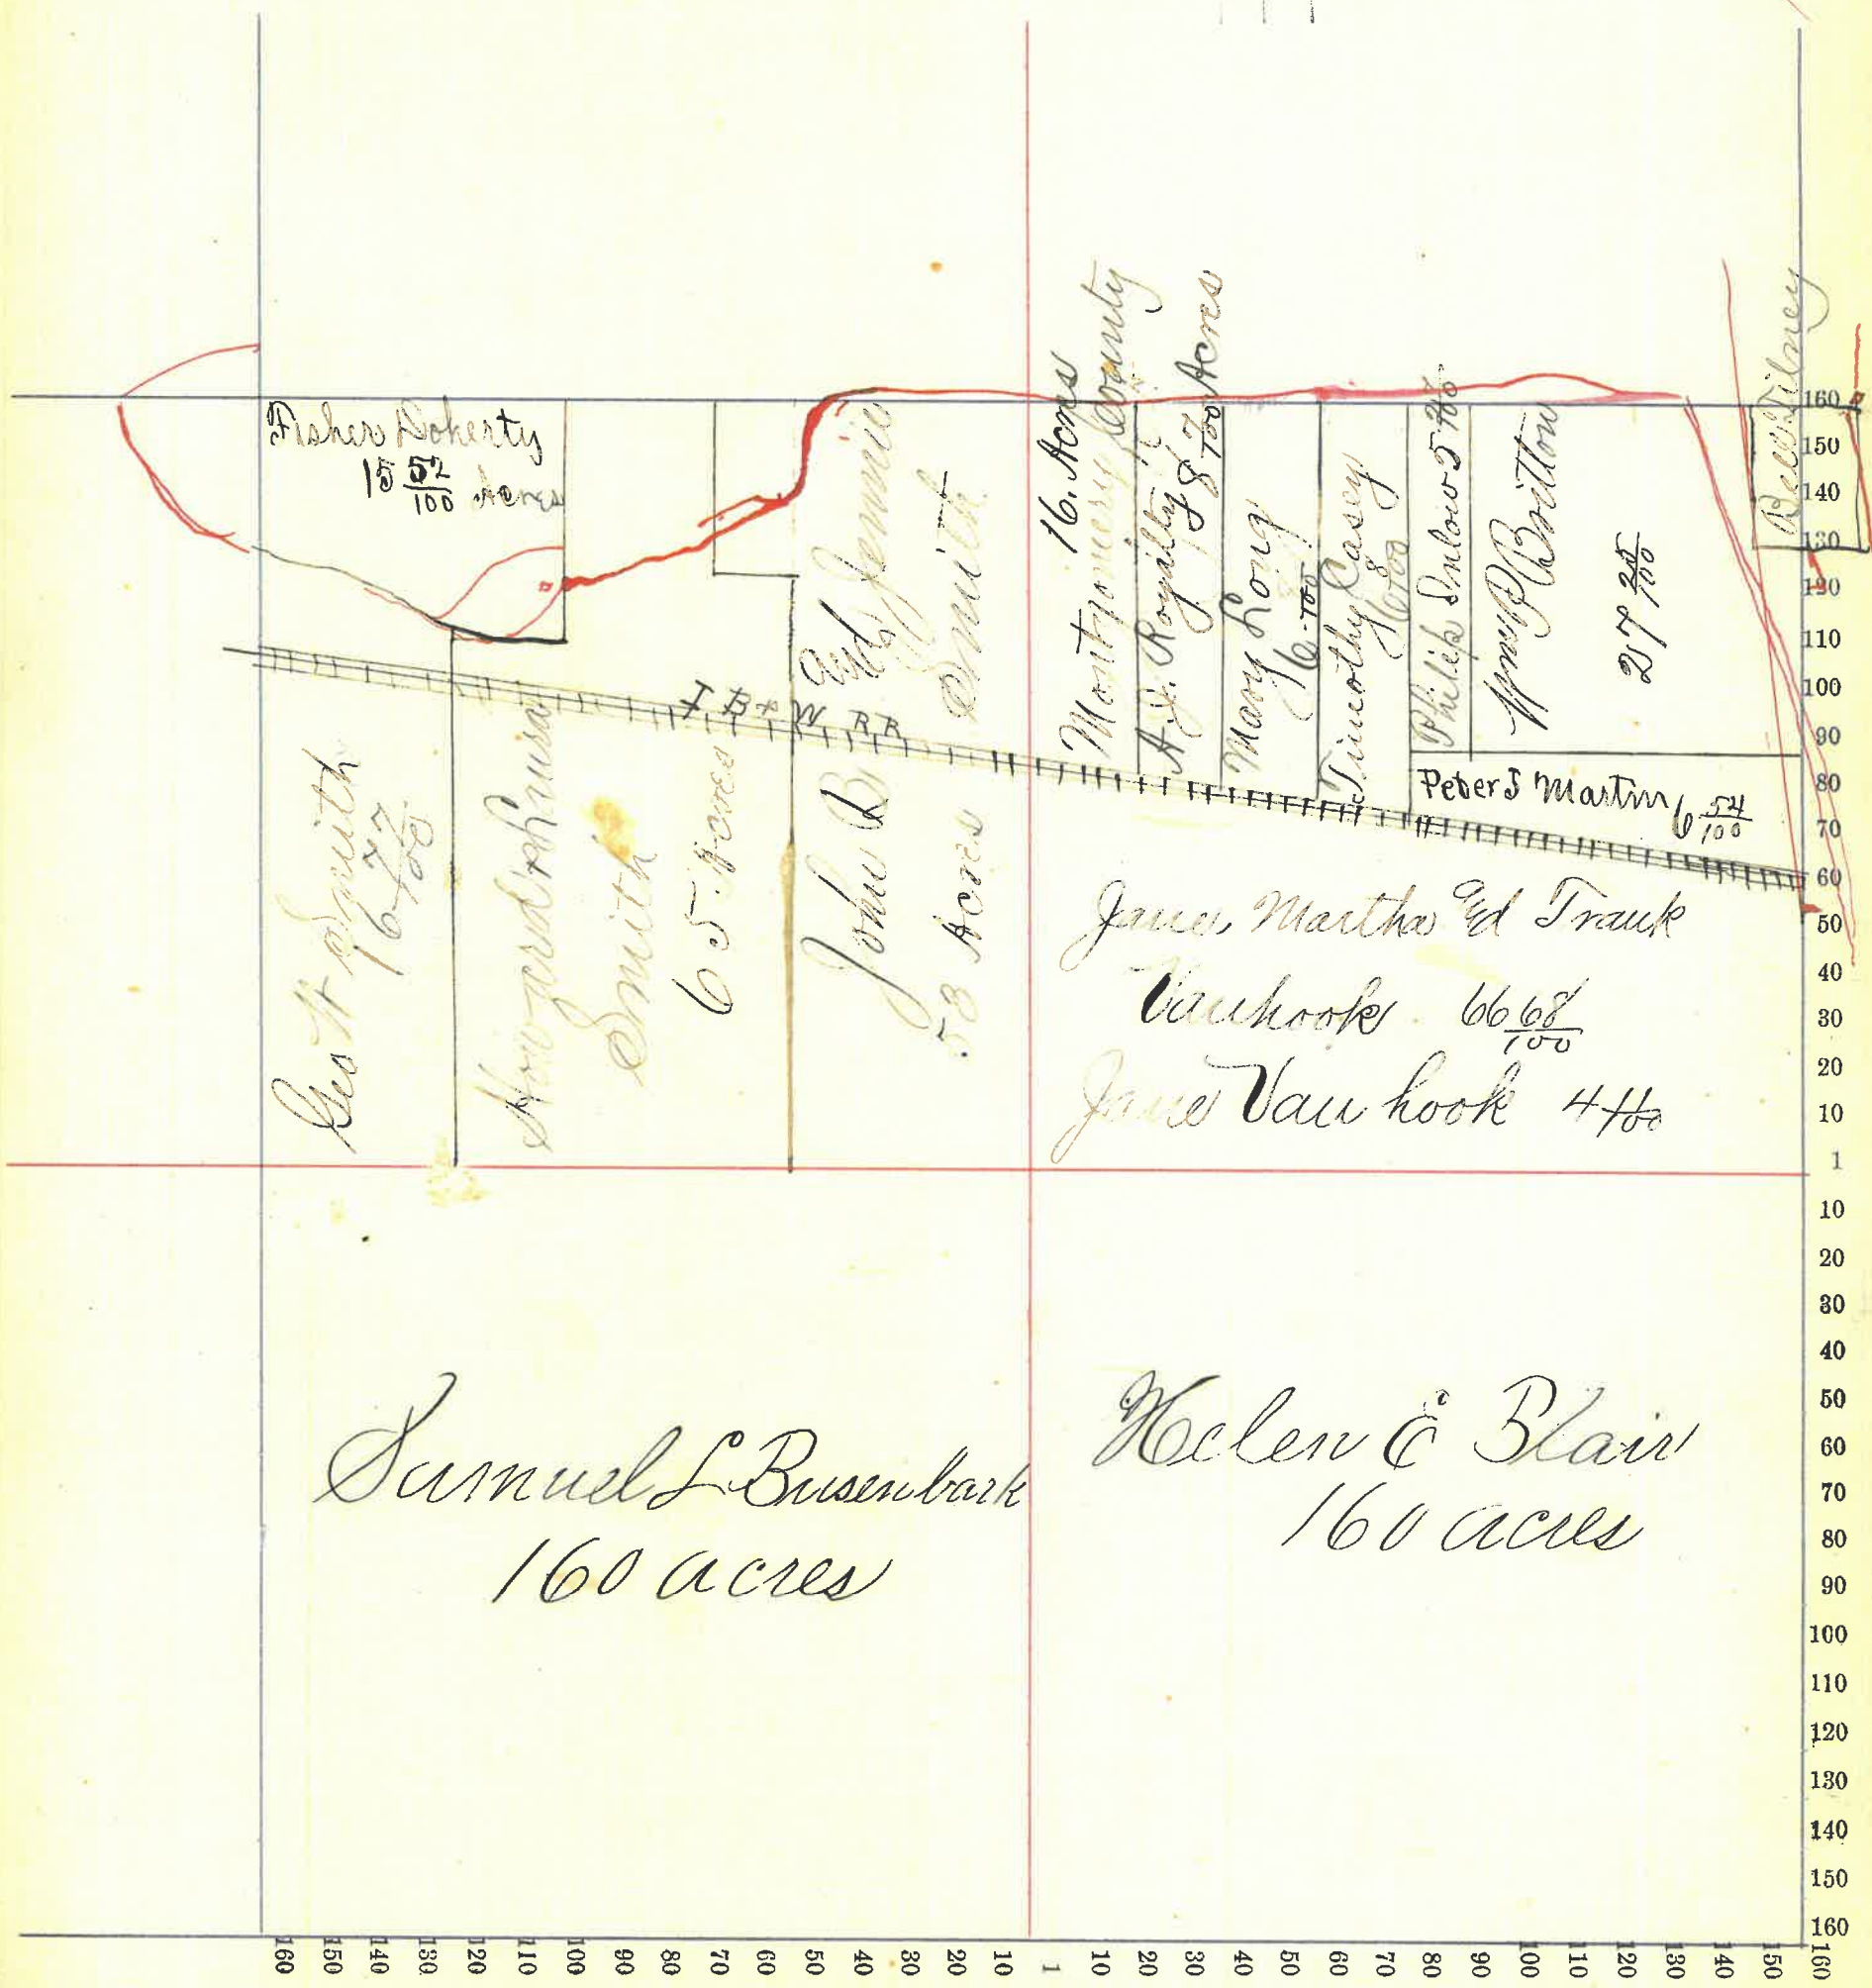 Fisher Doherty
15 52/100 Acres
Geo W Smith
16 77/100
Howard & Louisa
Smith
65 Acres
I B & W R R
John B and Jennie
Smith
53 Acres
16. Acres
Montgomery County
A. J. Royalty 8 7/100 Acres
Mary Long
6
Timothy Casey
6 8/100
Philip 5
Wm P Britton
27 25/100
Peter J Martin 6 54/100
Ben Tilney
Jane, Martha Ed Frank
Vanhook 66 68/100
Jane Van hook 4
Samuel L Busenbark
160 acres
Helen E Blair
160 acres
160
150
140
130
120
110
100
90
80
70
60
50
40
30
20
10
1
10
20
30
40
50
60
70
80
90
100
110
120
130
140
150
160
160 150 140 130 120 110 100 90 80 70 60 50 40 30 20 10 1 10 20 30 40 50 60 70 80 90 100 110 120 130 140 150 160